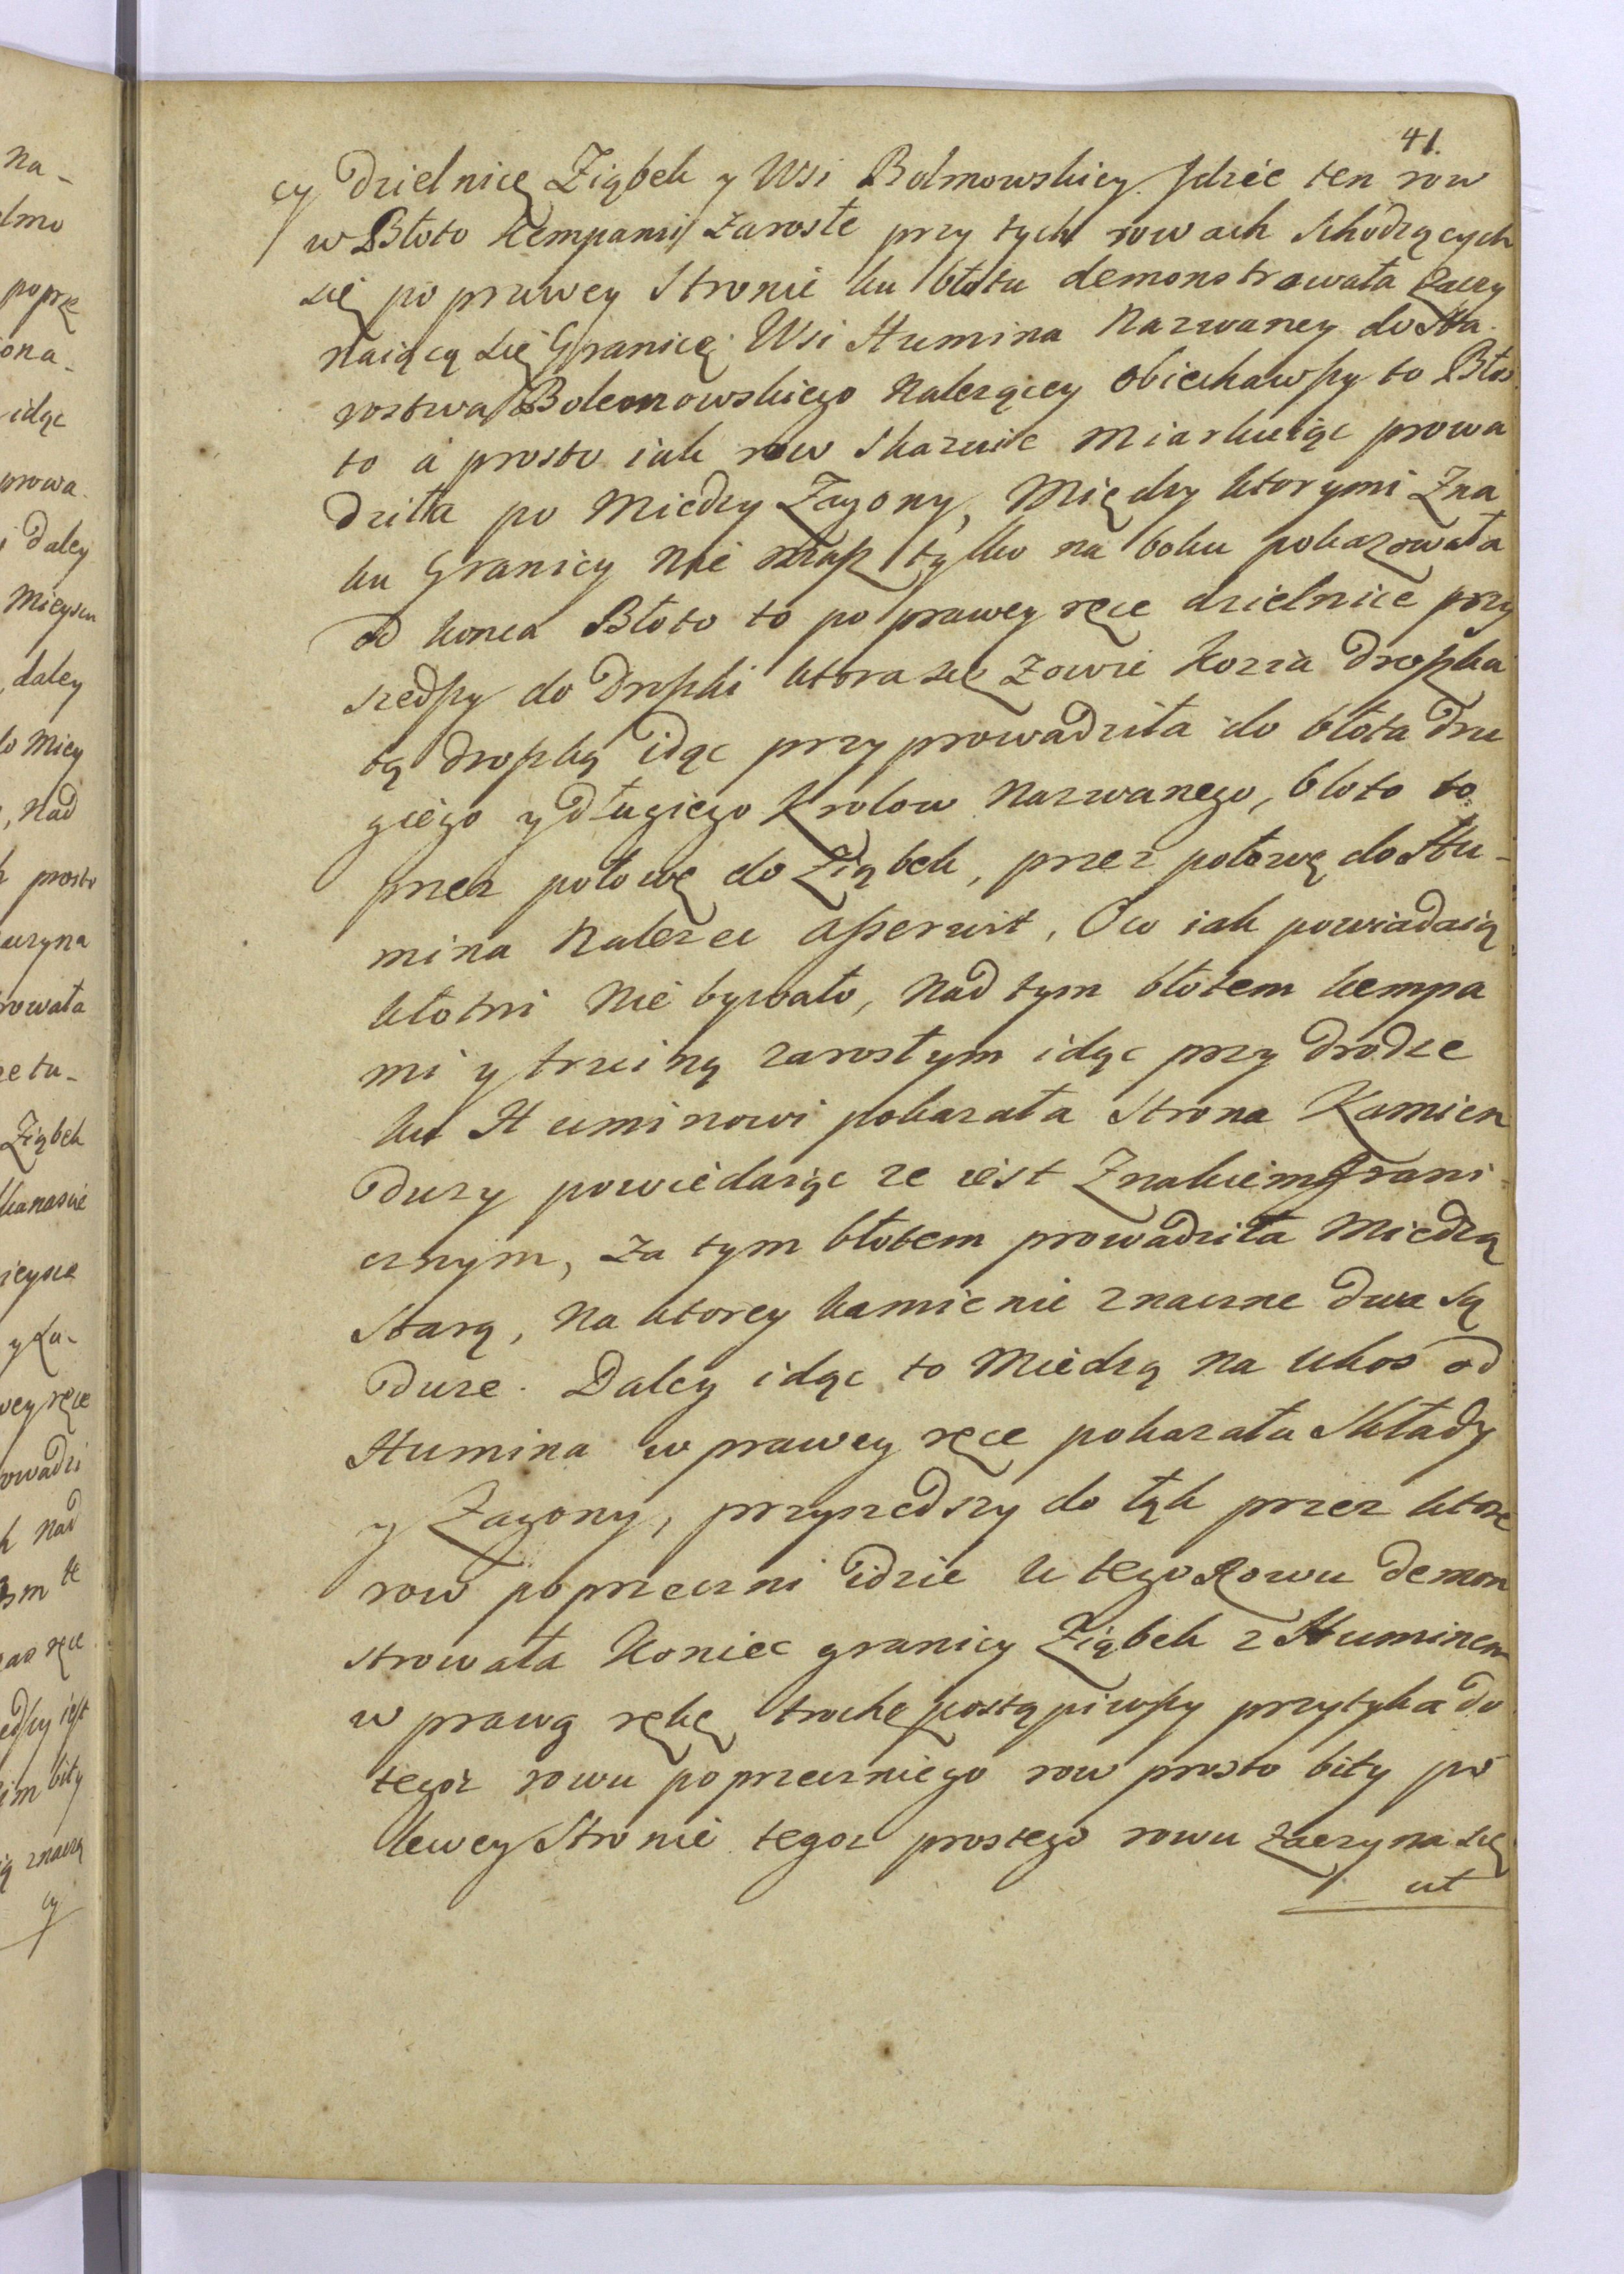 41.
cy Dzielnicę Ziąbek y Wsi Bolmowskiey. Jdzie ten row
w Błoto kempami zarosłe przy tych rowach schodzących
się po prawey Stronie ku błotu demonstrowała zaczy
naiącą się Granicę Wsi Humina Nazwaney do Sta-
rostwa Bolemowskiego Nalezącey obiechawszy to Bło
to a prosto iak row skazuie Miarkuiąc prowa
dziła po Miedzy Zagony, Między ktorymi Zna
ku Granicy Nie masz tylko na boku pokazowała
od konca Błoto to po prawey ręce dzielnice przy
szedszy do Drożki ktora się zowie Kozia drożka
tą drożką idąc przyprowadziła do błota dru
giego y długiego Krolow Nazwanego, błoto to
przez połowę do Ziąbek, przez połowę do Hu-
mina Nalezec asseruit, O co iak powiadaią
kłotni Nie bywało, Nad tym błotem kempa
mi y trzciną zarosłym idąc przy drodze
ku Huminowi pokazała Strona Kamien
Duzy powiedaiąc ze iest Znakiem Grani
cznym, za tym błotem prowadziła Miedzą
Starą, Na ktorey kamienie znaczne dwa są
Duze. Daley idąc to Miedzą na ukos od
Humina w prawey ręce pokazała Składy
y Zagony, przyszedszy do łąk przez ktore
row poprzeczni idzie u tego Rowu demon
strowała Koniec granicy Ziąbek z Huminem
w prawą rękę trochę postąpiwszy przytyka do
tegoz rowu poprzeczniego row prosto bity po
lewey Stronie tegoz prostego rowu zaczyna się
ut
Na-
poprze
idąc
prowa-
daley
Mieyscu
daley
do Miey
, Nad
prosto
rowała
Ziąbek
y Za-
wey ręce
owadzi
Nad
ręce
bity
znaczą
cy